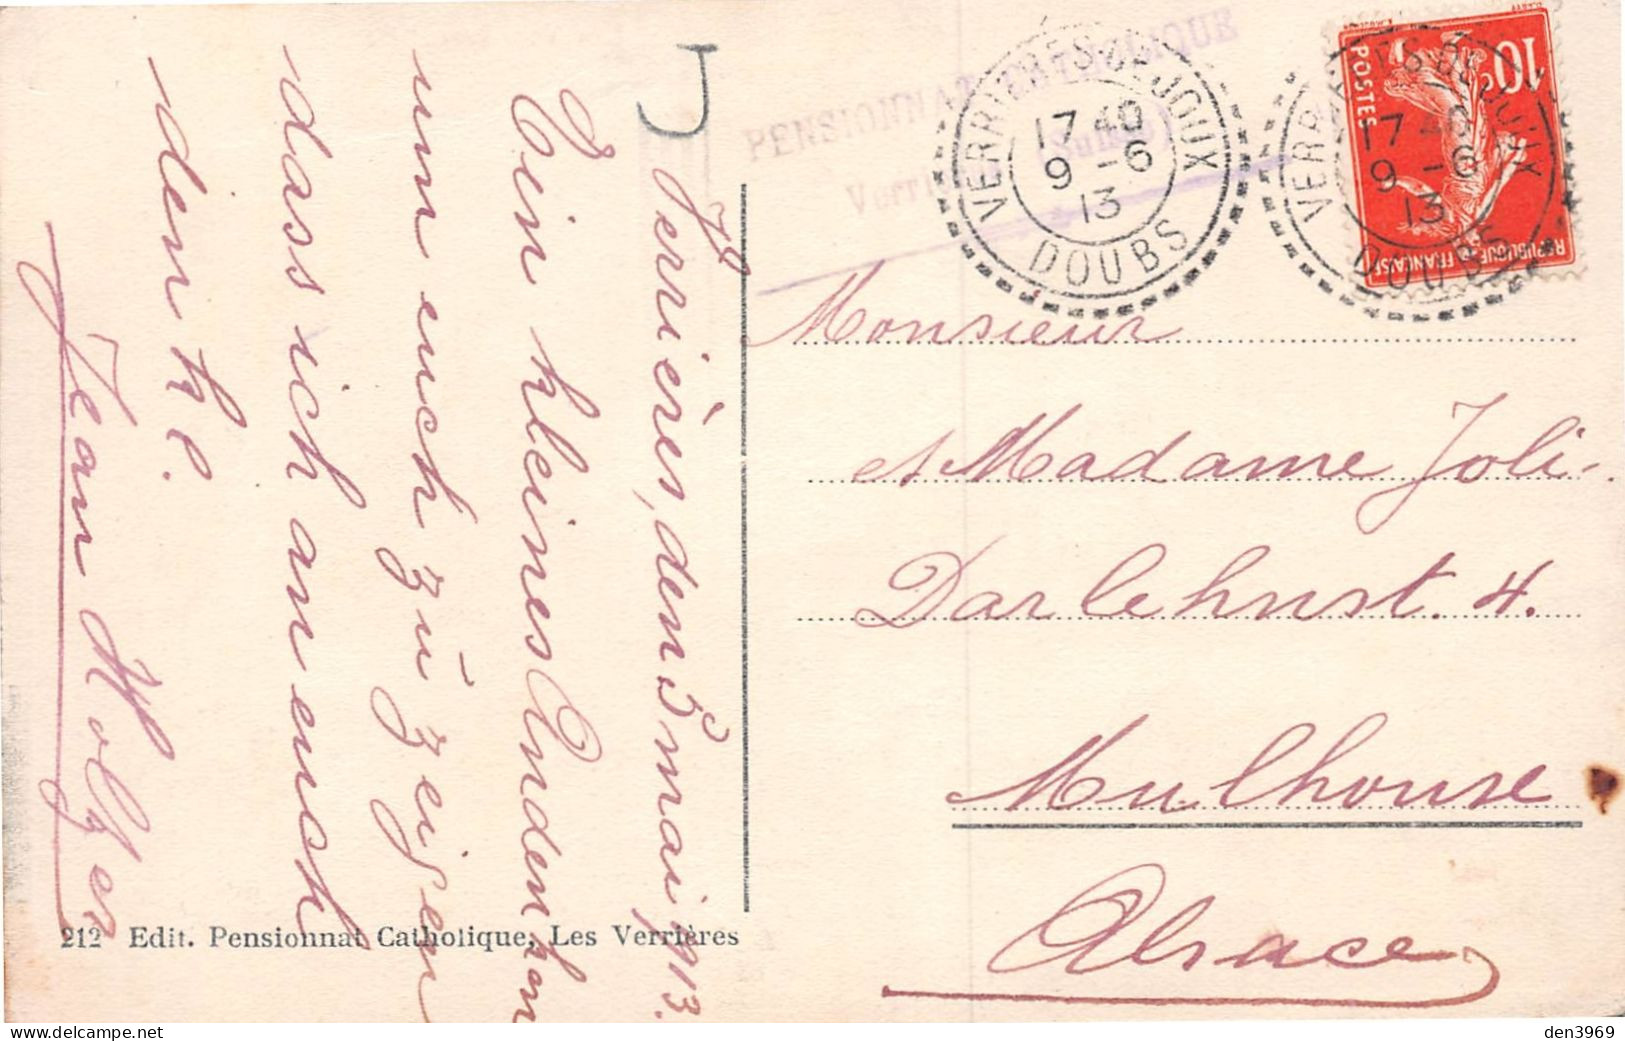 Verrières, den 5 mai 1913.
Ein kleines Andenken
um euch zu zeigen
dass ich an euch
denke.
Jean Holtzer
212 Edit. Pensionnat Catholique, Les Verrières
PENSIONNAT CATHOLIQUE
Verrières (Suisse)
VERRIÈRES-DE-JOUX
17 40
9 -6
13
DOUBS
VERRIÈRES-DE-JOUX
17 40
9 -6
13
DOUBS
10c
POSTES
REPUBLIQUE FRANCAISE
Monsieur
et Madame Joli-
Darlehnst. 4.
Mulhouse
Alsace
den3969